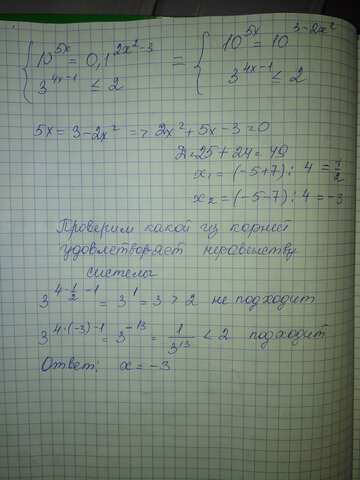 { 10^{5x} = 0,1^{2x²-3} = { 10^{5x} = 10^{3-2x²}
3^{4x-1} ≤ 2 3^{4x-1} ≤ 2
5x = 3-2x² => 2x²+5x-3=0
D=25+24=49
x₁ = (-5+7) : 4 = 1/2
x₂ = (-5-7) : 4 = -3
Проверим какой из корней
удовлетворяет неравенству
системы
3^{4·1/2-1} = 3¹ = 3 > 2 не подходит
3^{4·(-3)-1} = 3^{-13} = 1/3^{13} < 2 подходит
Ответ: x = -3